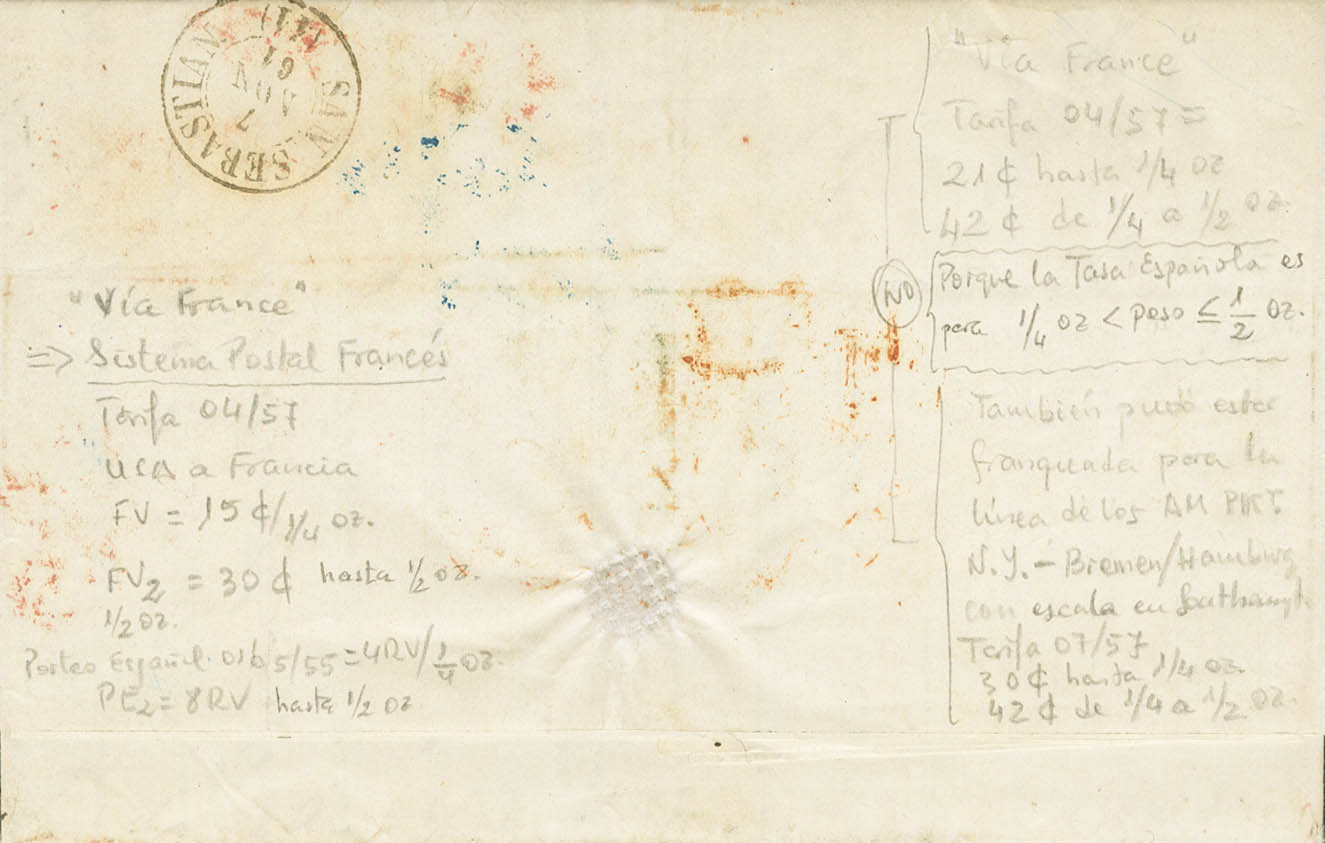 SAN SEBASTIAN
7
NOV
61
"Vía France"
=> Sistema Postal Francés
Tarifa 04/57
USA a Francia
FV = 15 ¢/1/4 oz.
FV2 = 30 ¢ hasta 1/2 oz.
1/2 oz.
Porteo Español 5/55 = 4RV/1/4 oz.
PE2 = 8RV hasta 1/2 oz
"Vía France"
Tarifa 04/57 =
21 ¢ hasta 1/4 oz
42 ¢ de 1/4 a 1/2 oz.
NO
Porque la Tasa Española es
para 1/4 oz < peso ≤ 1/2 oz.
También pudo estar
franqueada para la
línea de los AM PKT
N.Y. - Bremen/Hamburg
con escala en
Tarifa 07/57
30 ¢ hasta 1/4 oz.
42 ¢ de 1/4 a 1/2 oz.